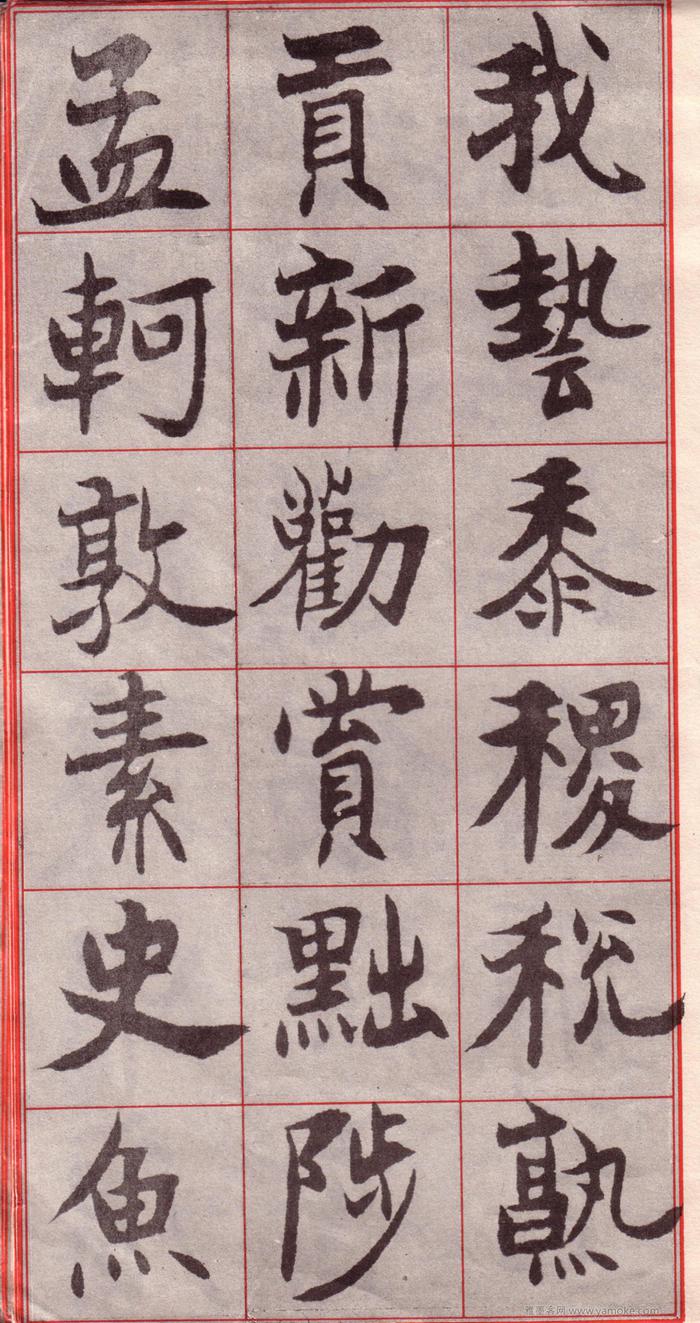 我藝黍稷稅熟
貢新勸賞黜陟
孟軻敦素史魚
雅墨客网 www.yamoke.com